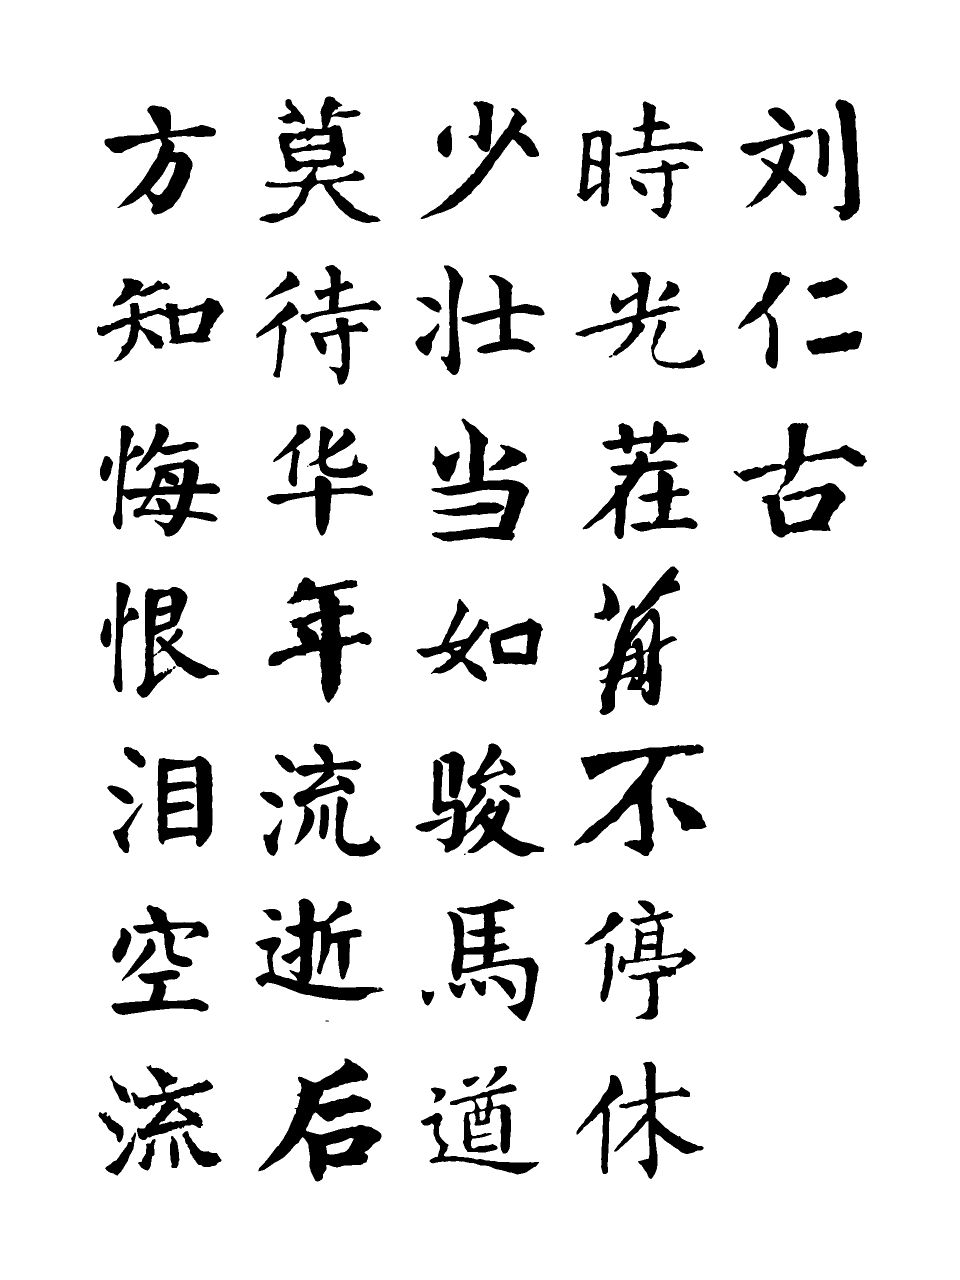 刘仁古
時光荏苒不停休
少壮当如骏馬遒
莫待华年流逝后
方知悔恨泪空流